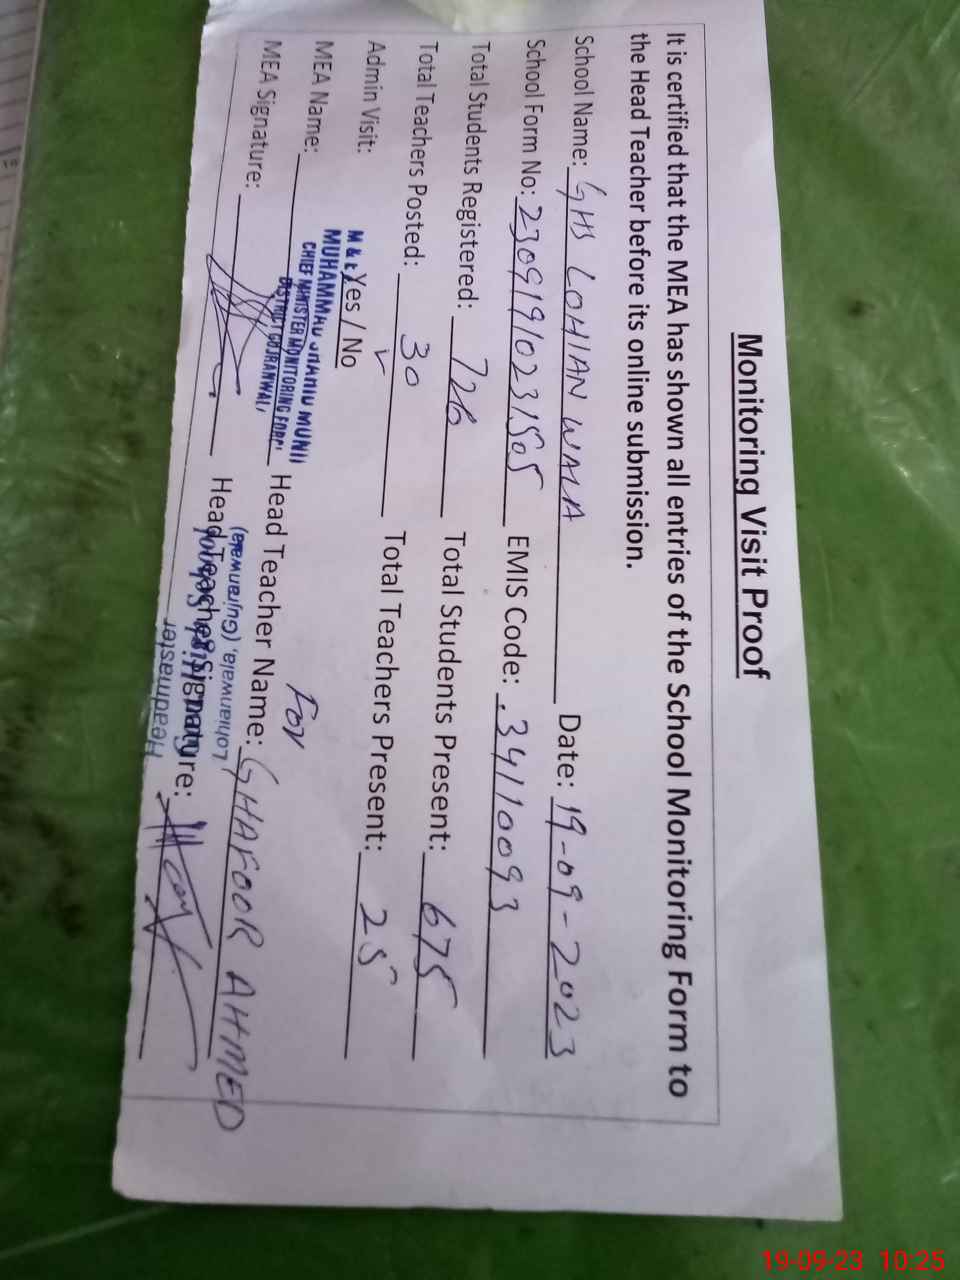 Monitoring Visit Proof
It is certified that the MEA has shown all entries of the School Monitoring Form to
the Head Teacher before its online submission.
School Name: GHS LOHIAN WALA Date: 19-09-2023
School Form No: 23091910231505 EMIS Code: 34110093
Total Students Registered: 726 Total Students Present: 675
Total Teachers Posted: 30 Total Teachers Present: 25
Admin Visit: Yes / No ✓
MEA Name: Head Teacher Name: GHAFOOR AHMED
MEA Signature: Head Teacher Signature:
M & E
MUHAMMAD
CHIEF MINISTER MONITORING FORC
DISTRICT GUJRANWALA
For
Headmaster
Lohianwala, (Gujranwala)
19-09-23 10:25